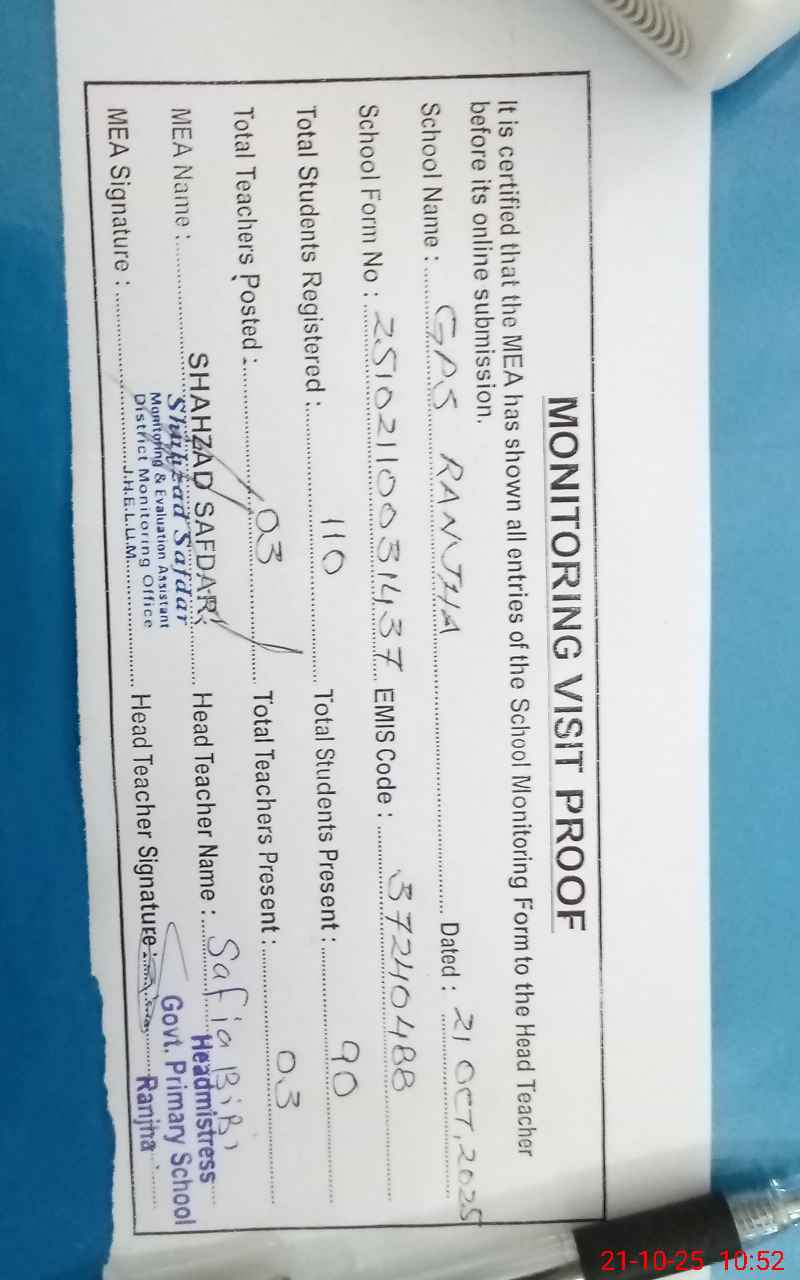 MONITORING VISIT PROOF
It is certified that the MEA has shown all entries of the School Monitoring Form to the Head Teacher
before its online submission.
School Name : GPS RANJHA Dated : 21 OCT, 2025
School Form No : 25102110031437 EMIS Code : 37240488
Total Students Registered : 110 Total Students Present : 90
Total Teachers Posted : 03 Total Teachers Present : 03
MEA Name : SHAHZAD SAFDAR Head Teacher Name : Safia BiBi
Shahzad Safdar
Monitoring & Evaluation Assistant
District Monitoring Office
J.H.E.L.U.M.
Headmistress
Govt. Primary School
Ranjha
MEA Signature : Head Teacher Signature :
21-10-25 10:52